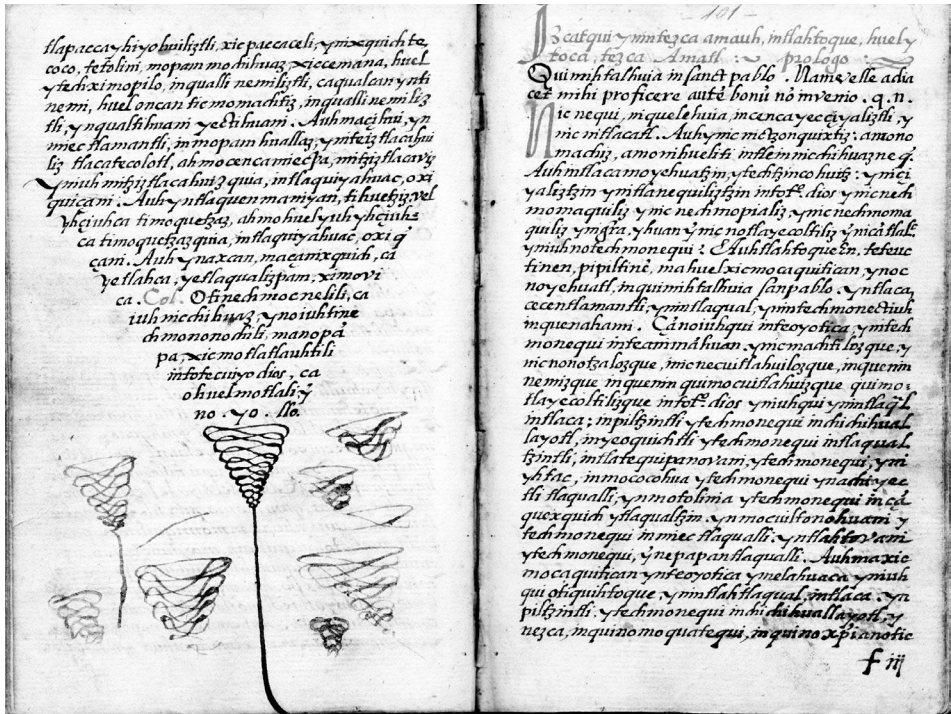 tlapaccayhiyohuiliztli, xicpaccaceli, ynixquich te,
coco, tetolini, mopammochihuaz xiccemana, huel
ytechximopilo, inqualli nemiliztli, caqualcan ynti
nemi, huel oncan ticmomachtiz, inqualli nemiliz
tli, ynqualtihuani yectihuani. Auhmaçihui, yn
miec tlamantli, inmopam huallaz, ynteiztlacahui
liz tlacatecolotl, ahmo cenca miecpa, mitziztlacaviz
yniuh mitziztlacahuiz quia, intlaquiyahuac, oxi
quicani. Auh yntlaquenmaniyan, tihuetziz, vel
yhçiuhca timoquetzaz, ahmo huel yuh yhçiuh
ca timoquetzazquia, intlaquiyahuac, oxi q
çani. Auh ynaxcan, macamixquich, ca
yetlahca, yetlaqualizpam, ximovi
ca. Col. Otinechmocnelili, ca
iuh nicchihuaz, ynoiuhtine
chmononochili, manopā
pa, xicmotlatlauhtili
intotecuiyo dios, ca
ohuelmotlali, ỹ
no . yo . llo.
101
Izcatqui ynintezca amauh, intlahtoque, huel y
toca, tezca Amatl : prologo :
Quimihtalhuia in sanct pablo. Nam velle adia
cet mihi proficere autē bonū nō invenio. q. n.
Nic nequi, inquelehuia, incenca yecçiyaliztli, y
nic nitlacatl. Auh ynic nictzonquixtiz: amono
machiz, amonihueliti intlein nicchihuazneq̄.
Auhintlacamoyehuatzin, ytechtzinco huitz: yniçi
yaliztzin ynitlanequiliztzin intotō. dios ynicnech
momaquiliz ynic nechmopializ, ynic nechmoma
quiliz ymgr̄a, yhuan ỹnic notlayecoltiliz ỹnicātlal,
yniuh notechmonequi? Auh tlahtoqueēn, teteuc
tinen, pipiltinē, mahuelxicmocaquitican, ynoc
noyehuatl, inquimihtalhuia sanpablo. yntlaca,
cecentlamantli, ynintlaqual, ynintechmonectiuh
inquenahami. Çanoiuhqui inteoyotica, yntech
monequi inteanimāhuan, ynicmachtilozque, y
nicnonotzalozque, inicnecuitlahuilozque, inquenin
nemizque inquenin quimocuitlahuizque quimo:
tlayecoltilizque intotō. dios yniuhqui ynintlaq̄l
intlaca: inpiltzintli ytechmonequi inchichihual
layotl, inycoquichtli ytechmonequi intlaqual
tzintli, intlatequipanovani, ytechmonequi, ynī
yhtac, inmococohua ytechmonequi ynachi yec
tli tlaqualli, ynmotolinia ytechmonequi in cā
quexquich ytlaqualtzin. ynmocuiltonohuani y
techmonequi inmiec tlaqualli. yntlahtovani
ytechmonequi, ỹnepapantlaqualli. Auhmaxic
mocaquitican ynteoyotica ymelahuaca yniuh
qui otiquihtoque, ynintlahtlaqual, intlaca. ya
piltzintli: ytechmonequi inchichihuallayotl, y
nezca, inquinomoquatequi, inquino xp̄ianotic
f iij